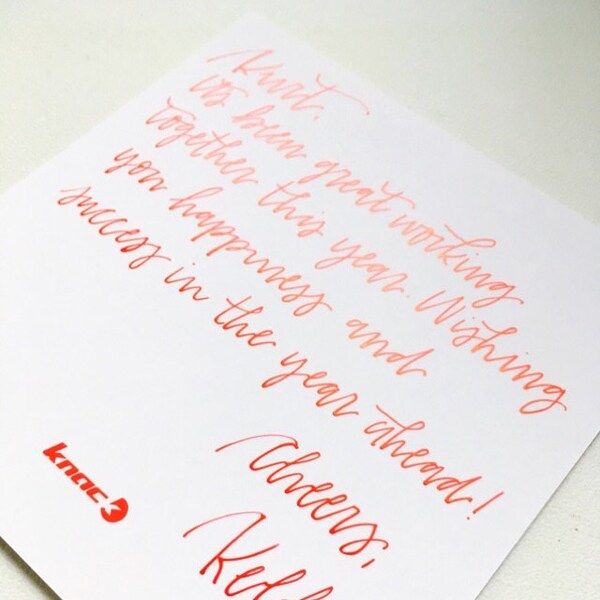 Kurt,
it's been great working
together this year. Wishing
you happiness and
success in the year ahead!
Cheers,
knac3